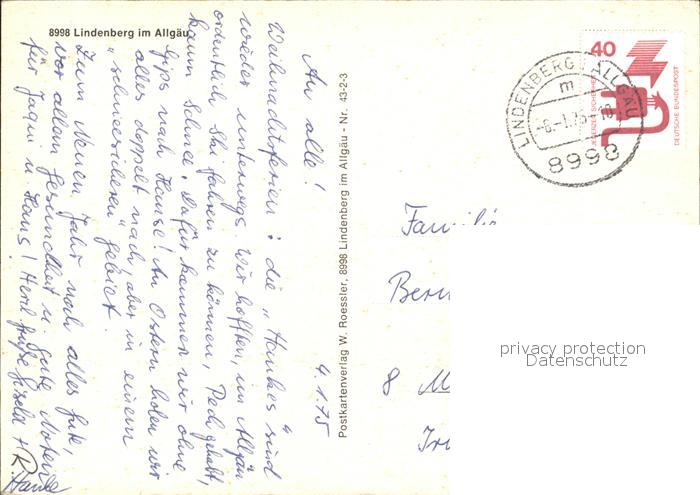 8998 Lindenberg im Allgäu
4.1.75
An alle!
Weihnachtsferien: die „Hankes" sind
wieder unterwegs. Wir hofften, im Allgäu
ordentlich Ski fahren zu können, Pech gehabt,
kaum Schnee. Dafür kommen wir ohne
Gips nach Hause! An Ostern holen wir
alles doppelt nach, aber in einem
„schneesicheren" Gebiet.
Zum Neuen Jahr noch alles Gute,
vor allem Gesundheit u. gute Noten
für Jaqui u. Hans! Herzl. Grüße Gisela +
R. Hanke
Postkartenverlag W. Roessler, 8998 Lindenberg im Allgäu - Nr. 43-2-3
40
JEDERZEIT SICHERHEIT
DEUTSCHE BUNDESPOST
LINDENBERG i. ALLGÄU
m
-6.-1.75-18
8998
Familie
Bern
8 M
privacy protection
Datenschutz